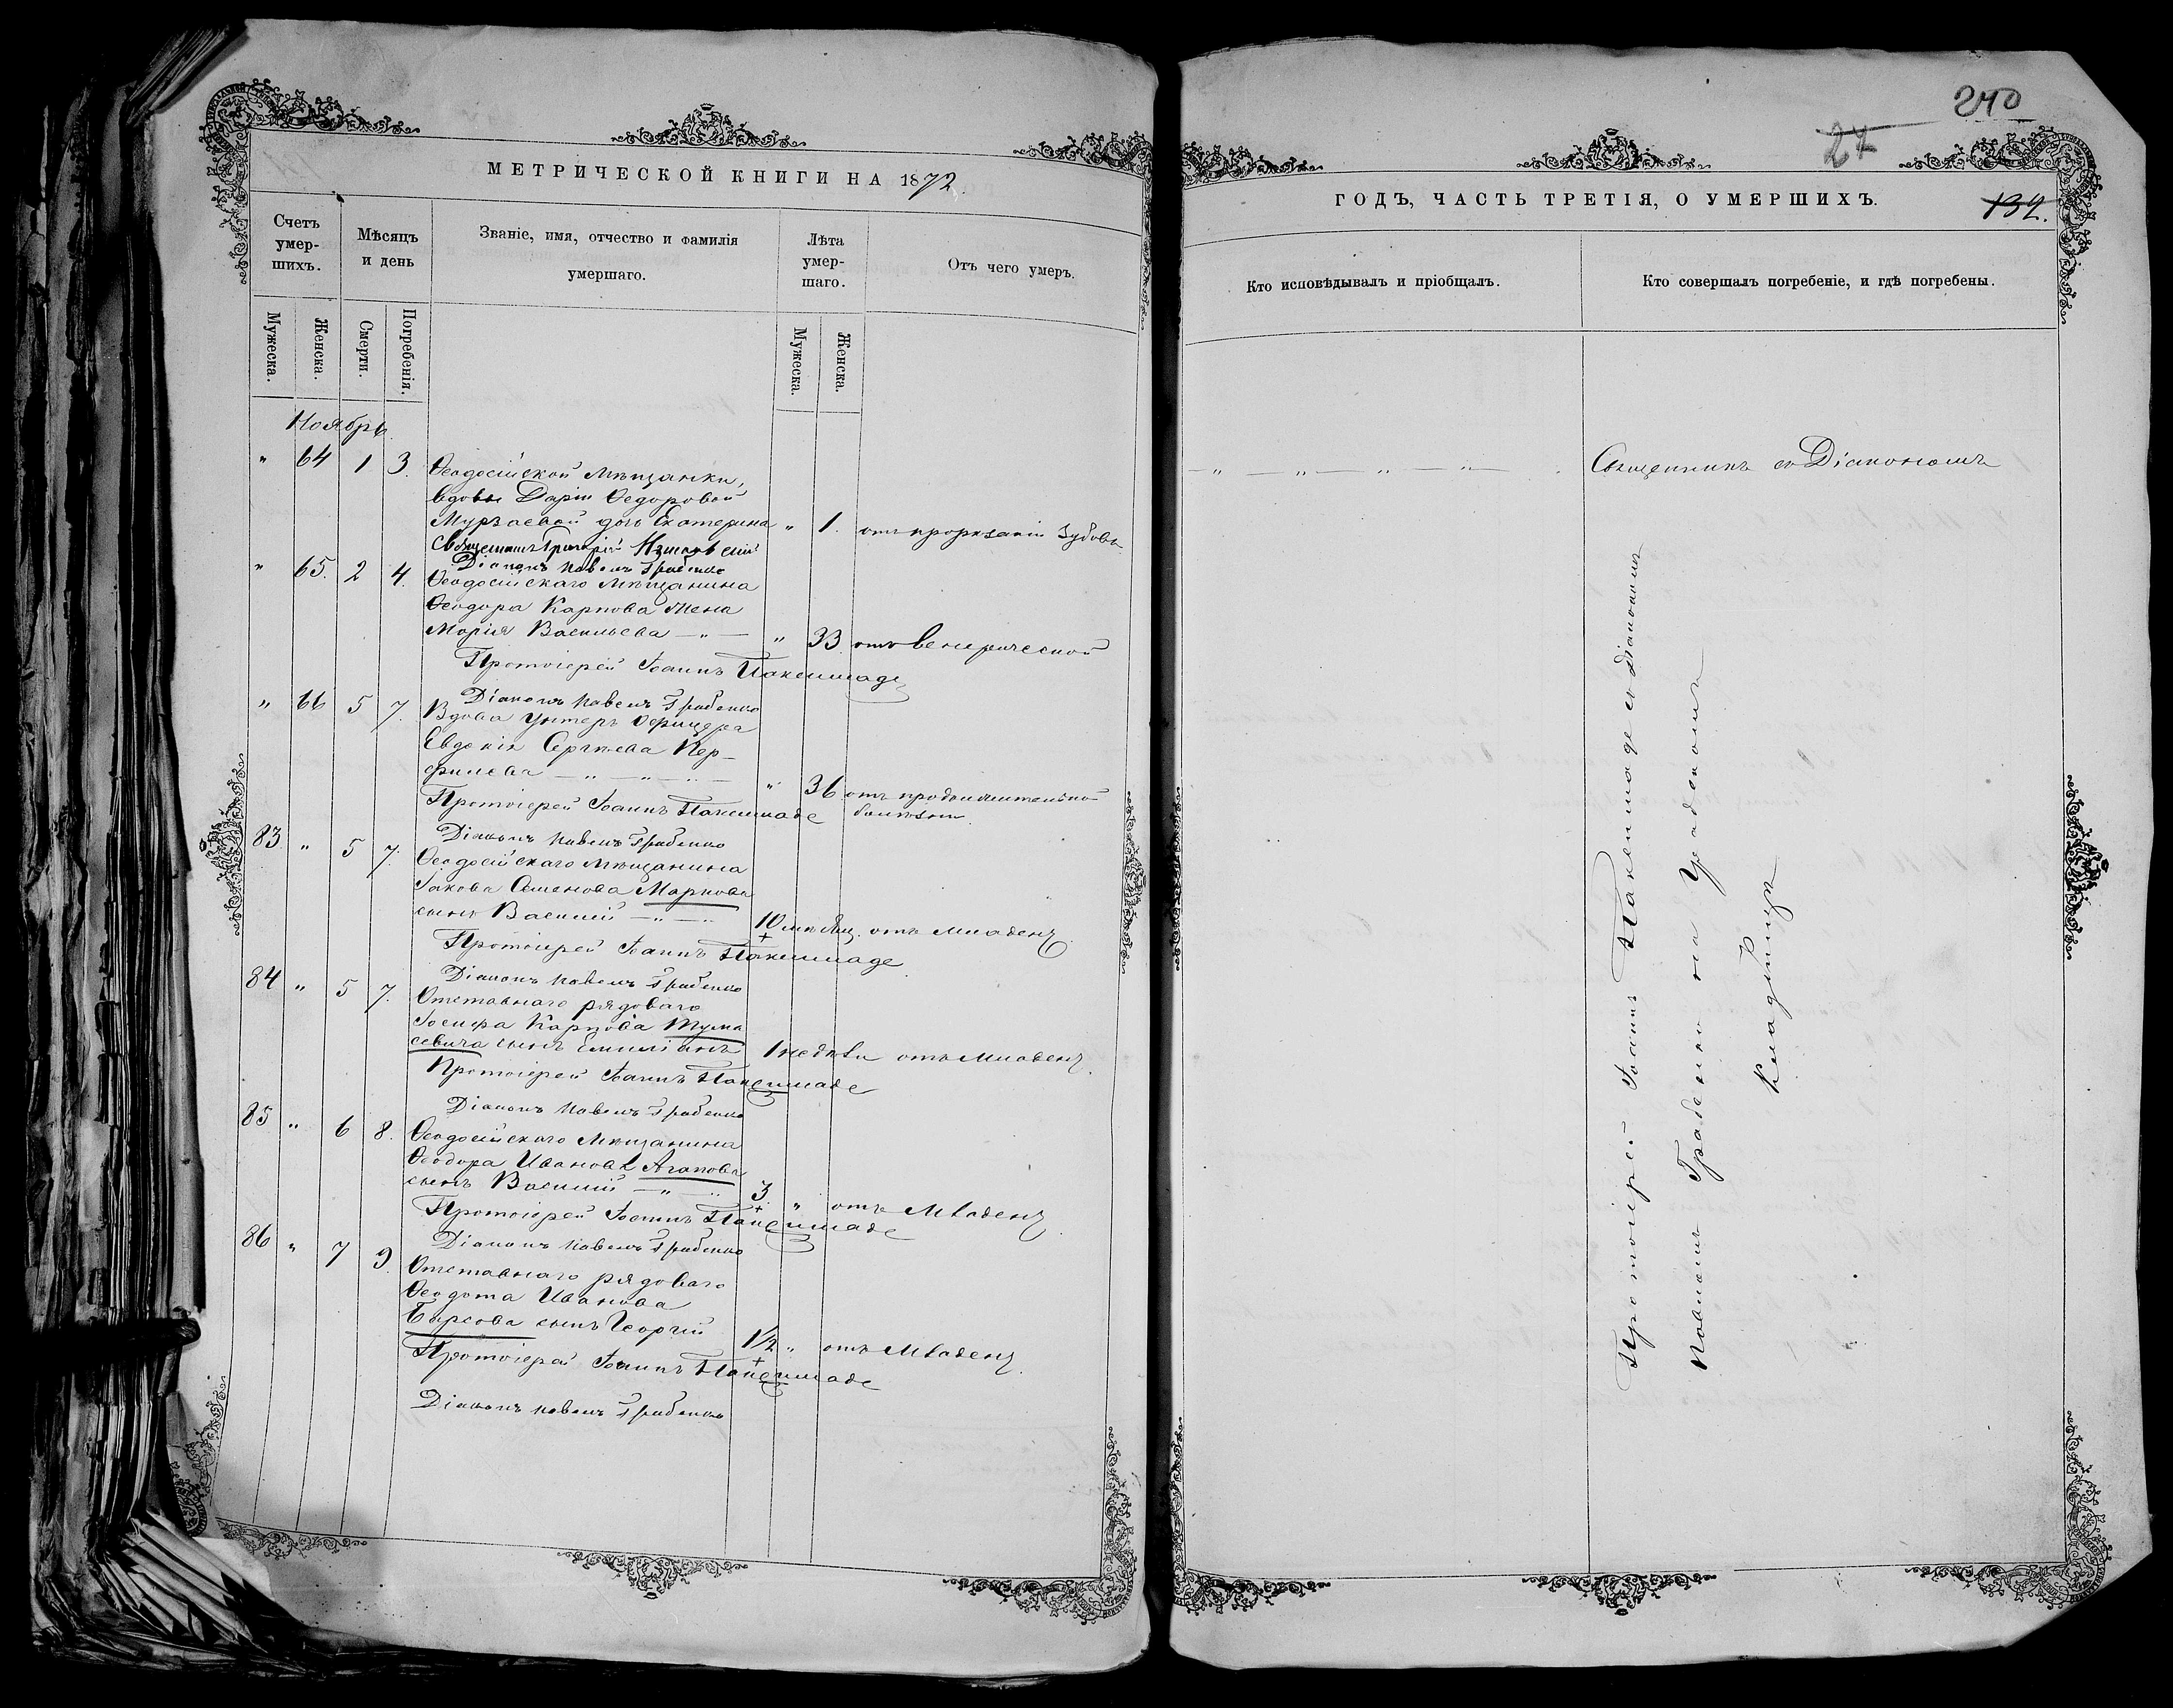 МЕТРИЧЕСКОЙ КНИГИ НА 1872.
Счетъ умер-шихъ.
Мѣсяцъ и день
Званіе, имя, отчество и фамилія умершаго.
Лѣта умер-шаго.
Отъ чего умеръ.
Мужеска.
Женска.
Смерти.
Погребенія.
Мужеска.
Женска.
Ноябрь
" 64 1 3. Ѳеодосійской Мѣщанки,
вдовы Даріи Ѳедоровой
Мурзаевой дочь Екатерина " 1. отъ прорѣзанія зубовъ
Священникъ Григорій
Діаконъ Павелъ Грабенко
" 65. 2 4. Ѳеодосійскаго Мѣщанина
Ѳеодора Карпова жена
Марія Васильева — " — " 33. отъ венерической
Протоіерей Іоаннъ Пакешшаде
Діаконъ Павелъ Грабенко
" 66 5 7. Вдова Унтеръ Офицера
Евдокія Сергѣева Пер-
филева — " — " — " — " 36. отъ продолжительной
болѣзни.
Протоіерей Іоаннъ Пакешшаде
Діаконъ Павелъ Грабенко
83. " 5 7. Ѳеодосійскаго Мѣщанина
Іакова Семенова Маркова
сынъ Василій — " — " 10 мѣсяц. отъ младенч.
Протоіерей Іоаннъ Пакешшаде
Діаконъ Павелъ Грабенко
84 " 5 7. Отставнаго рядоваго
Іосифа Карпова Тума
севича сынъ Емиліанъ 1 недѣли отъ младенч.
Протоіерей Іоаннъ Пакешшаде
Діаконъ Павелъ Грабенко
85 " 6 8. Ѳеодосійскаго Мѣщанина
Ѳеодора Иванова Агапова
сынъ Василій — " — " 3. " отъ Младенч.
Протоіерей Іоаннъ Пакешшаде
Діаконъ Павелъ Грабенко
86 " 7 9. Отставнаго рядоваго
Ѳеодота Иванова
Барсова сынъ Георгій 1 1/2 " отъ Младенч.
Протоіерей Іоаннъ Пакешшаде
Діаконъ Павелъ Грабенко
240
27
ГОДЪ, ЧАСТЬ ТРЕТІЯ, О УМЕРШИХЪ.
132.
Кто исповѣдывалъ и пріобщалъ.
Кто совершалъ погребеніе, и гдѣ погребены.
— " — " — " — " — Священникъ съ Діакономъ
Протоіерей Іоаннъ Пакешшаде съ діакономъ
Павломъ Грабенко на Градскомъ
Кладбищѣ